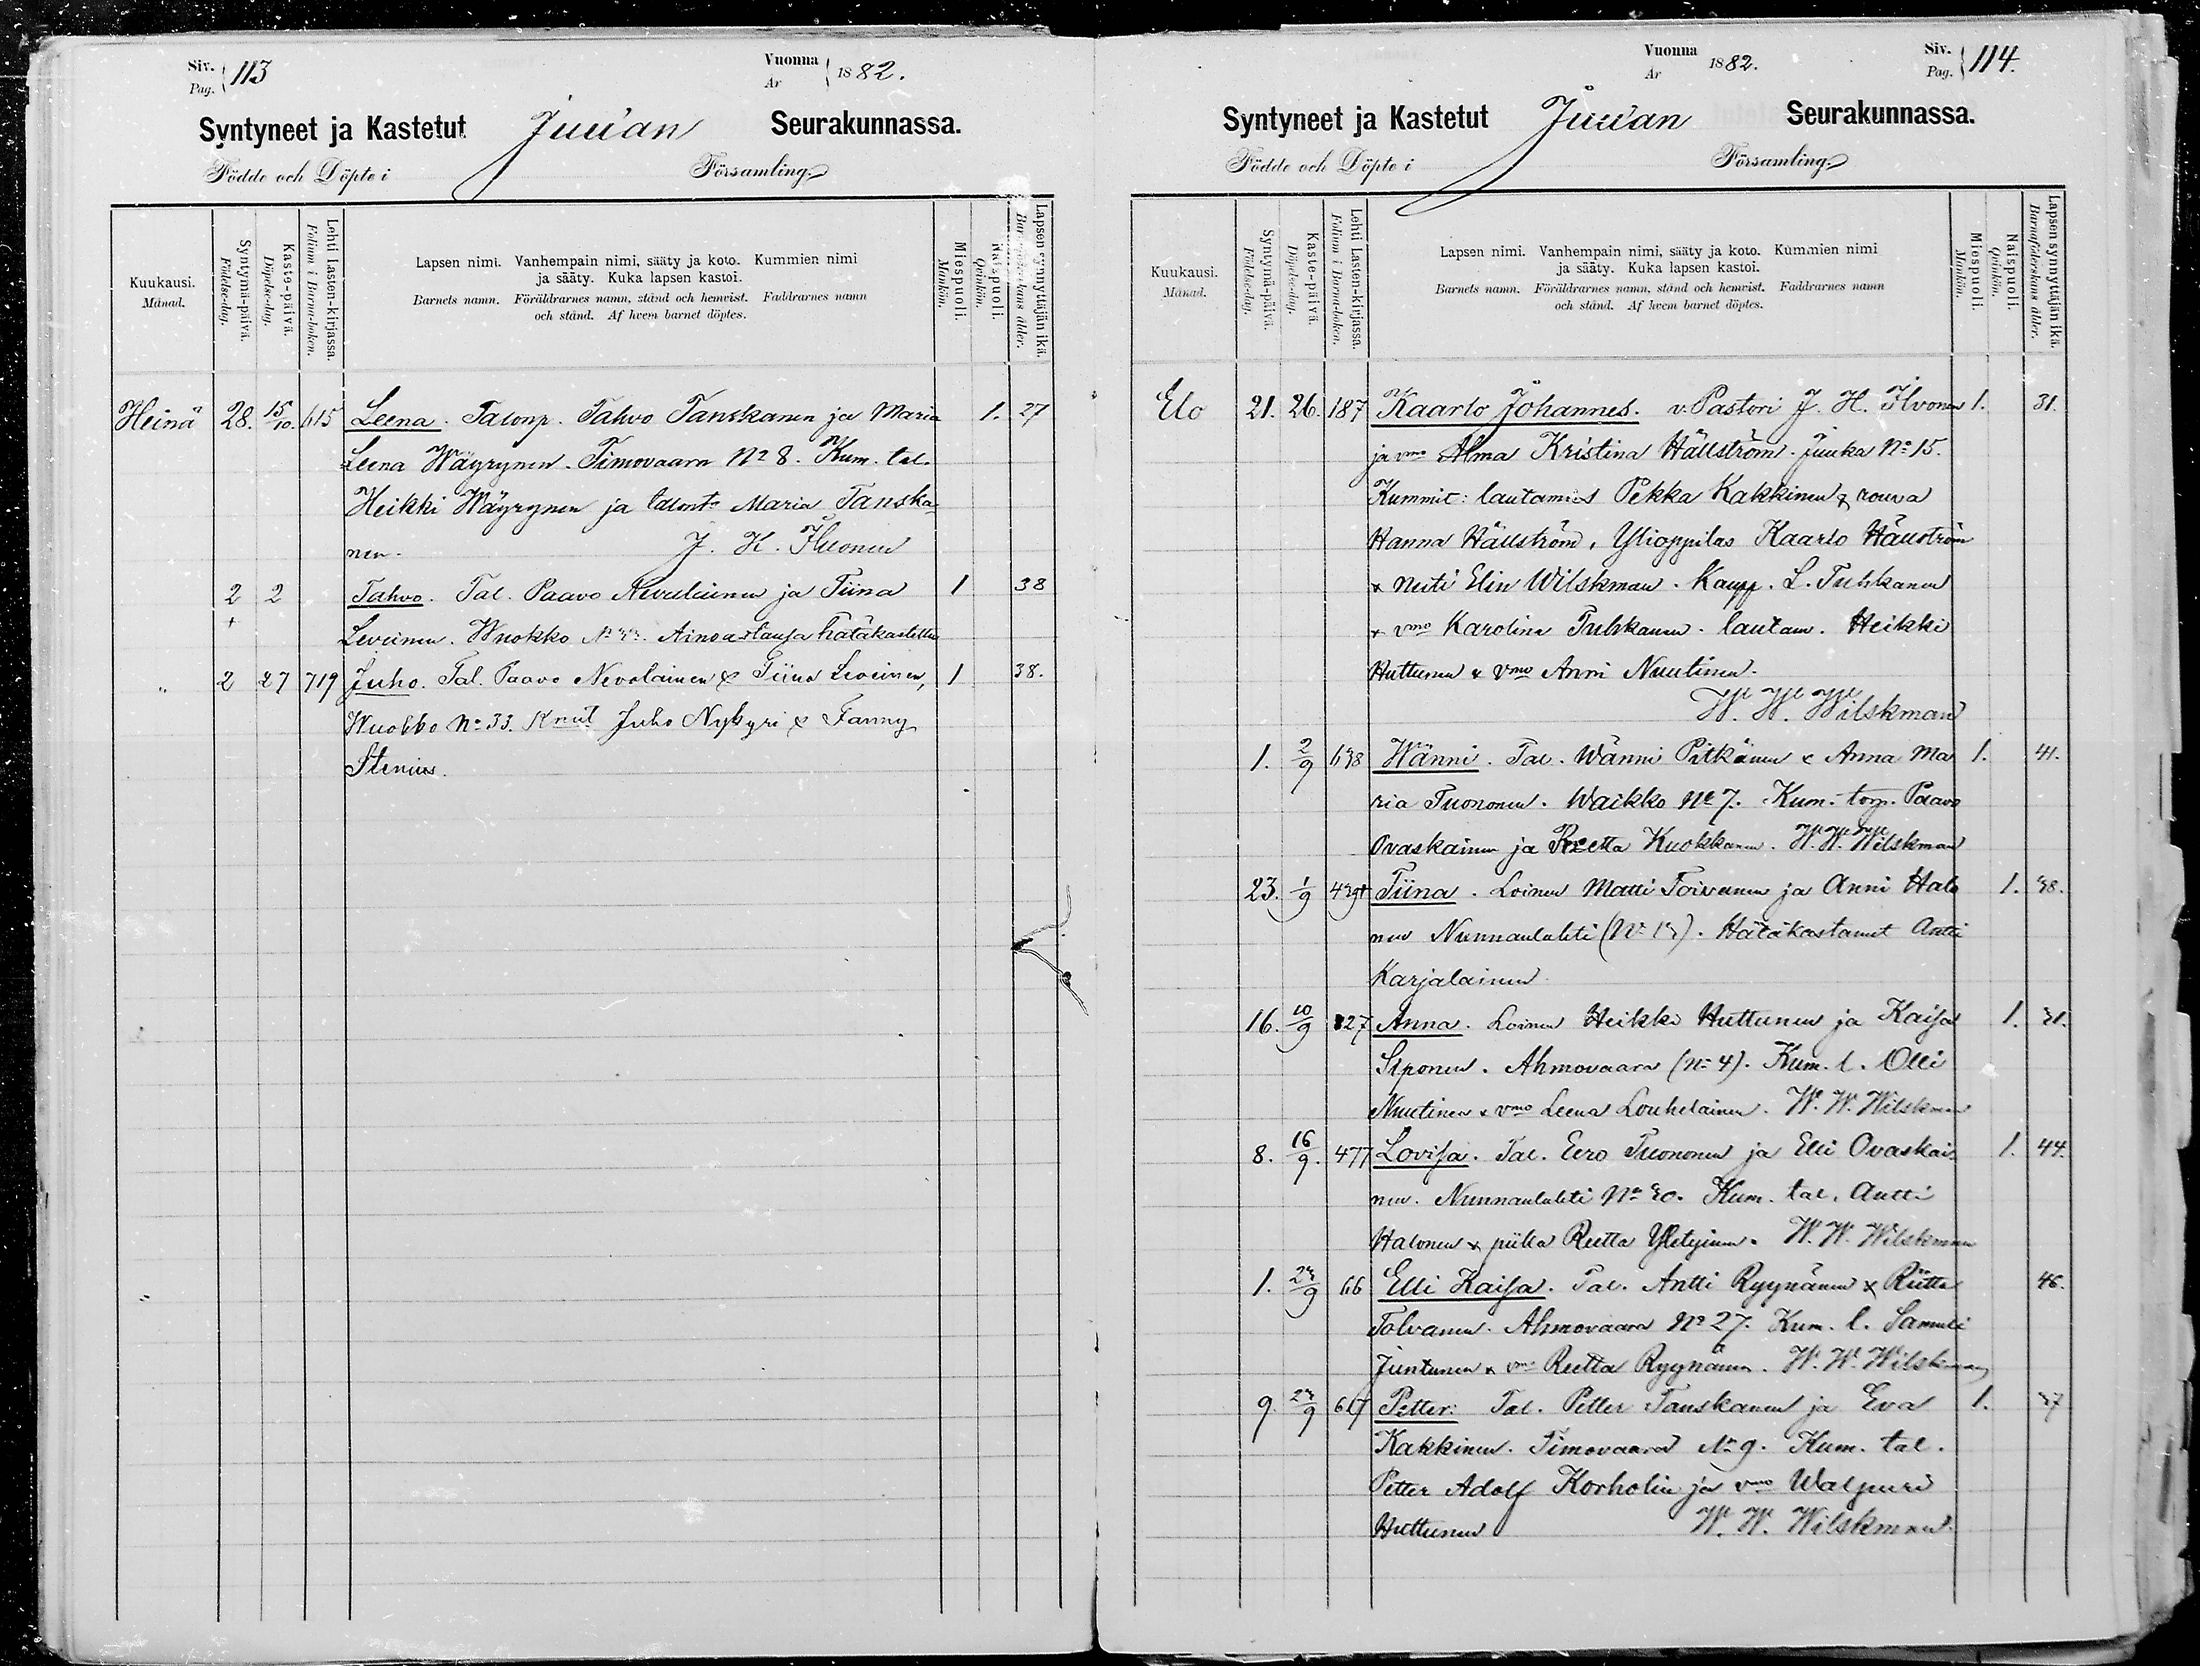 Siv. Pag. 113
Vuonna År 1882.
Syntyneet ja Kastetut Juuan Seurakunnassa.
Födde och Döpte i Församling.
Kuukausi. Månad.
Syntymä-päivä. Födelse-dag.
Kaste-päivä. Döpelse-dag.
Lehti Lasten-kirjassa. Folium i Barna-boken.
Lapsen nimi. Vanhempain nimi, sääty ja koto. Kummien nimi
ja sääty. Kuka lapsen kastoi.
Barnets namn. Föräldrarnes namn, stånd och hemvist. Faddrarnes namn
och stånd. Af hvem barnet döptes.
Miespuoli. Mankön.
Naispuoli. Qvinkön.
Lapsen synnyttäjän ikä.
Heinä 28. 15/10. 615 Leena. Talonp. Tahvo Tanskanen ja Maria 1. 27
Leena Wäyrynen. Timovaara No 8. Kum. tal.
Heikki Wäyrynen ja talont. Maria Tanska-
nen. J. H. Ilvonen
2 2 Tahvo. Tal. Paavo Nevalainen ja Tiina 1 38
+ Leveinen. Wuokko No 33. Ainoastansa hätäkastettu
" 2 27 719 Juho. Tal. Paavo Nevolainen & Tiina Leveinen, 1 38.
Wuokko No 33. Kmit Juho Nykyri & Fanny
Stenius.
Vuonna År 1882.
Siv. Pag. 114.
Syntyneet ja Kastetut Juuan Seurakunnassa.
Födde och Döpte i Församling.
Kuukausi. Månad.
Syntymä-päivä. Födelse-dag.
Kaste-päivä. Döpelse-dag.
Lehti Lasten-kirjassa. Folium i Barna-boken.
Lapsen nimi. Vanhempain nimi, sääty ja koto. Kummien nimi
ja sääty. Kuka lapsen kastoi.
Barnets namn. Föräldrarnes namn, stånd och hemvist. Faddrarnes namn
och stånd. Af hvem barnet döptes.
Miespuoli. Mankön.
Naispuoli. Qvinkön.
Lapsen synnyttäjän ikä. Barnaföderskans ålder.
Elo 21. 26. 187 Kaarlo Johannes. v. Pastori J. H. Ilvonen 1. 31.
ja vmo Alma Kristina Hällström. Juuka No 15.
Kummit: lautamies Pekka Kakkinen & rouva
Hanna Hällström, Ylioppilas Kaarlo Hällström
& neiti Elin Wilskman. Kaupp. L. Tuhkanen
& vmo Karolina Tuhkanen. lautam. Heikki
Huttunen & vmo Anni Nuutinen.
W. W. Wilskman
1. 2/9 638 Wänni. Tal. Wänni Pitkänen & Anna Ma 1. 41.
ria Tuononen. Waikko No 7. Kum. torp. Paavo
Ovaskainen ja Reetta Kuokkanen. W. W. Wilskman
23. 1/9 Tiina. Loinen Matti Toivanen ja Anni Halo 1. 38.
nen Nunnanlahti (No 13). Hätäkastanut Antti
Karjalainen
16. 10/9 327 Anna. Loinen Heikki Huttunen ja Kaisa 1. 31.
Siponen. Ahmovaara (No 4). Kum. l. Olli
Nuutinen & vmo Leena Louhelainen. W. W. Wilskman
8. 16/9. 477 Lovisa. Tal. Eero Tuononen ja Elli Ovaskai- 1. 44.
nen. Nunnanlahti No 30. Kum. tal. Antti
Halonen & piika Reetta W. W. Wilskman
1. 23/9 66 Elli Kaisa. Tal. Antti Ryynänen & Riitta 46.
Tolvanen. Ahmovaara No 27. Kum. l. Samuli
Juntunen & vmo Reetta Ryynänen. W. W. Wilskman
9. 23/9 617 Petter. Tal. Petter Tanskanen ja Eva 1. 37
Kakkinen. Timovaara No 9. Kum. tal.
Petter Adolf Korholin ja vmo Walpuri
Huttunen W. W. Wilskman.